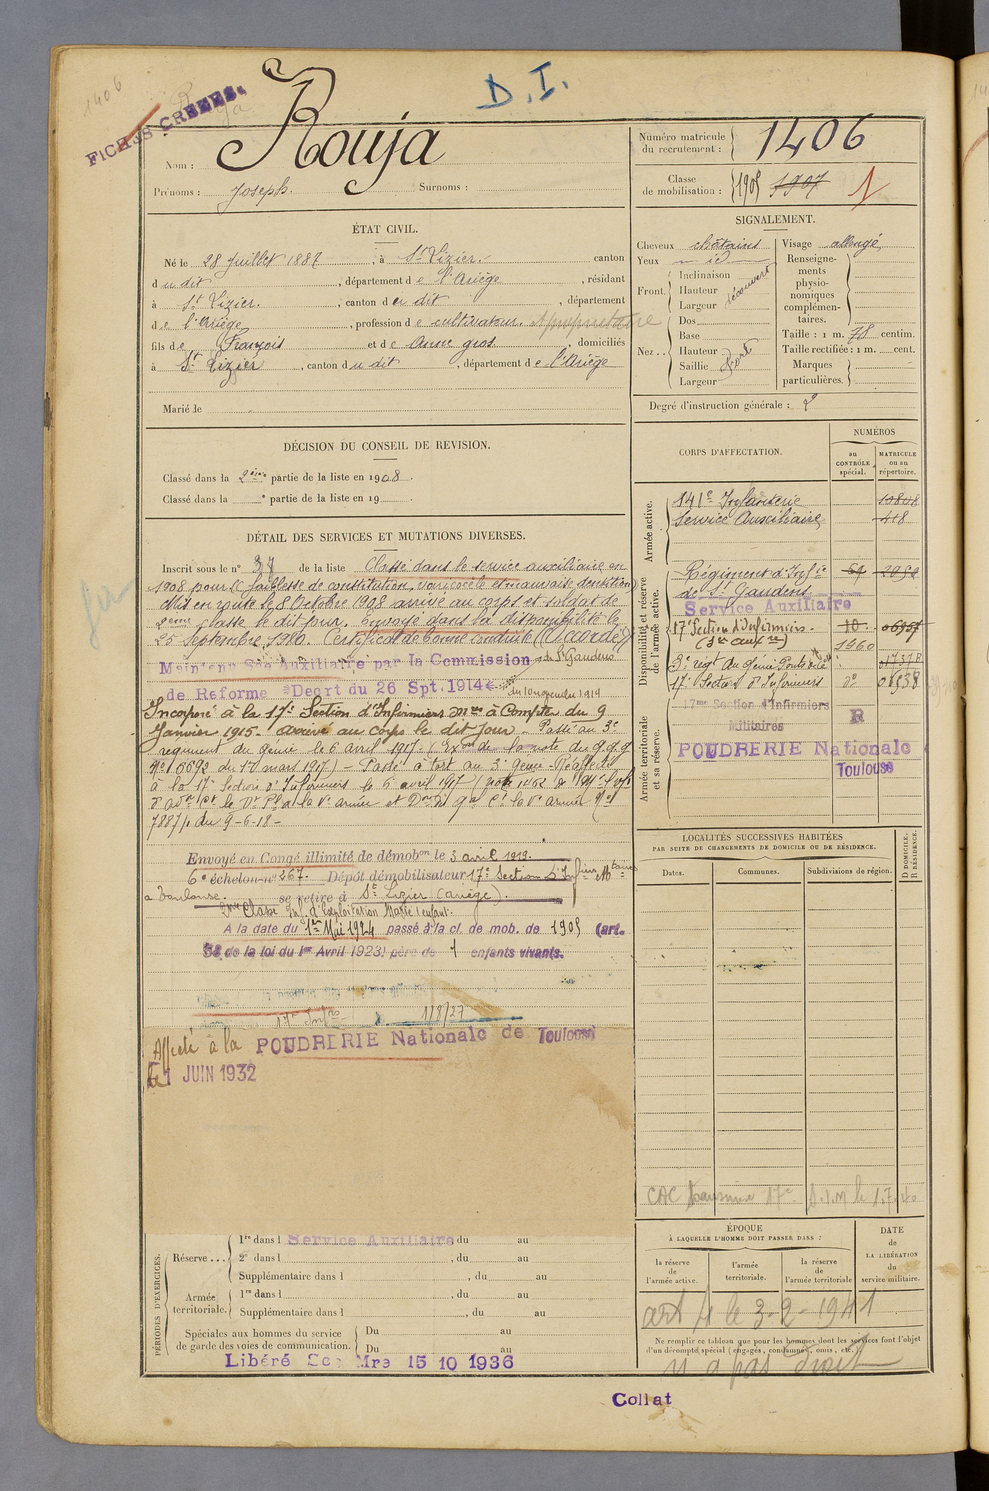 1406
FICHES CREEES.
D. I.
Rouja
Nom :
Prénoms : Joseph. Surnoms :
Numéro matricule du recrutement : 1406
Classe de mobilisation : 1905 1907 1
ÉTAT CIVIL.
Né le 28 Juillet 1887, à St Lizier. canton
du dit, département de l'Ariège, résidant
à St Lizier., canton du dit, département
de l'Ariège, profession de cultivateur. propriétaire
fils de François et de Anne gros., domiciliés
à St Lizier, canton du dit, département de l'Ariège
Marié le
SIGNALEMENT.
Cheveux châtains
Yeux id
Front. Inclinaison
Hauteur découvert
Largeur
Nez.. Dos
Base
Hauteur fort
Saillie
Largeur
Visage allongé
Renseignements physionomiques complémentaires.
Taille : 1 m. 78 centim.
Taille rectifiée : 1 m. cent.
Marques particulières.
Degré d'instruction générale : 2
DÉCISION DU CONSEIL DE REVISION.
Classé dans la 2ème partie de la liste en 1908.
Classé dans la e partie de la liste en 19
CORPS D'AFFECTATION.
NUMÉROS
au CONTRÔLE spécial.
MATRICULE ou au répertoire.
Armée active.
141e Infanterie
Service Auxiliaire 418
Disponibilité et réserve de l'armée active.
Régiment d'Infie
de St Gaudens
Service Auxiliaire
17e Section d'Infirmiers.
1960
3e régt du génie
17e Section d'Infirmiers do 01938
Armée territoriale et sa réserve.
17me Section d'Infirmiers
Militaires R
POUDRERIE Nationale
Toulouse
DÉTAIL DES SERVICES ET MUTATIONS DIVERSES.
Inscrit sous le no 37 de la liste Classé dans le service auxiliaire en
1908 pour faiblesse de constitution, varicocèle et mauvaise dentition
Mis en route le 8 Octobre 1908 arrivé au corps et soldat de
2ème classe le dit jour. Envoyé dans la disponibilité le
25 Septembre 1910. Certificat de bonne conduite "Accordé"
Maintenu Sce Auxiliaire par la Commission de St Gaudens
de Reforme Décrt du 26 Spt. 1914 du 10 novembre 1914
Incorporé à la 17e Section d'Infirmiers Mres à Compter du 9
Janvier 1915. arrivé au corps le dit jour. Passé au 3e
régiment du génie le 6 avril 1917
Passé à tort au 3e génie. Réaffecté
à la 17e Section d'Infirmiers le 6 avril 1917
du 9-6-18-
Envoyé en Congé illimité de démobon le 3 avril 1919.
6e échelon no 267. Dépôt démobilisateur 17e Section d'Infiers Mtaires
à Toulouse. se retire à St Lizier (Ariège).
A la date du 1er Mai 1924 passé à la cl. de mob. de 1905 (art.
58 de la loi du 1er Avril 1923) père de 1 enfants vivants.
Affecté à la POUDRERIE Nationale de Toulouse
le 1 JUIN 1932
LOCALITÉS SUCCESSIVES HABITÉES
PAR SUITE DE CHANGEMENTS DE DOMICILE OU DE RÉSIDENCE.
Dates. Communes. Subdivisions de région. D DOMICILE. R RÉSIDENCE.
PÉRIODES D'EXERCICES.
Réserve... 1re dans l Service Auxiliaire du au
2e dans l, du au
Supplémentaire dans l, du au
Armée territoriale. 1re dans l, du au
Supplémentaire dans l, du au
Spéciales aux hommes du service de garde des voies de communication. Du au
Du au
Libéré Sce Mre 15 10 1936
ÉPOQUE
À LAQUELLE L'HOMME DOIT PASSER DANS :
la réserve de l'armée active.
l'armée territoriale.
la réserve de l'armée territoriale
DATE de LA LIBÉRATION du service militaire.
art 4 le 3-2-1941
Ne remplir ce tableau que pour les hommes dont les services font l'objet
d'un décompte spécial (engagés, condamnés, omis, etc.).
n'a pas droit
Collat